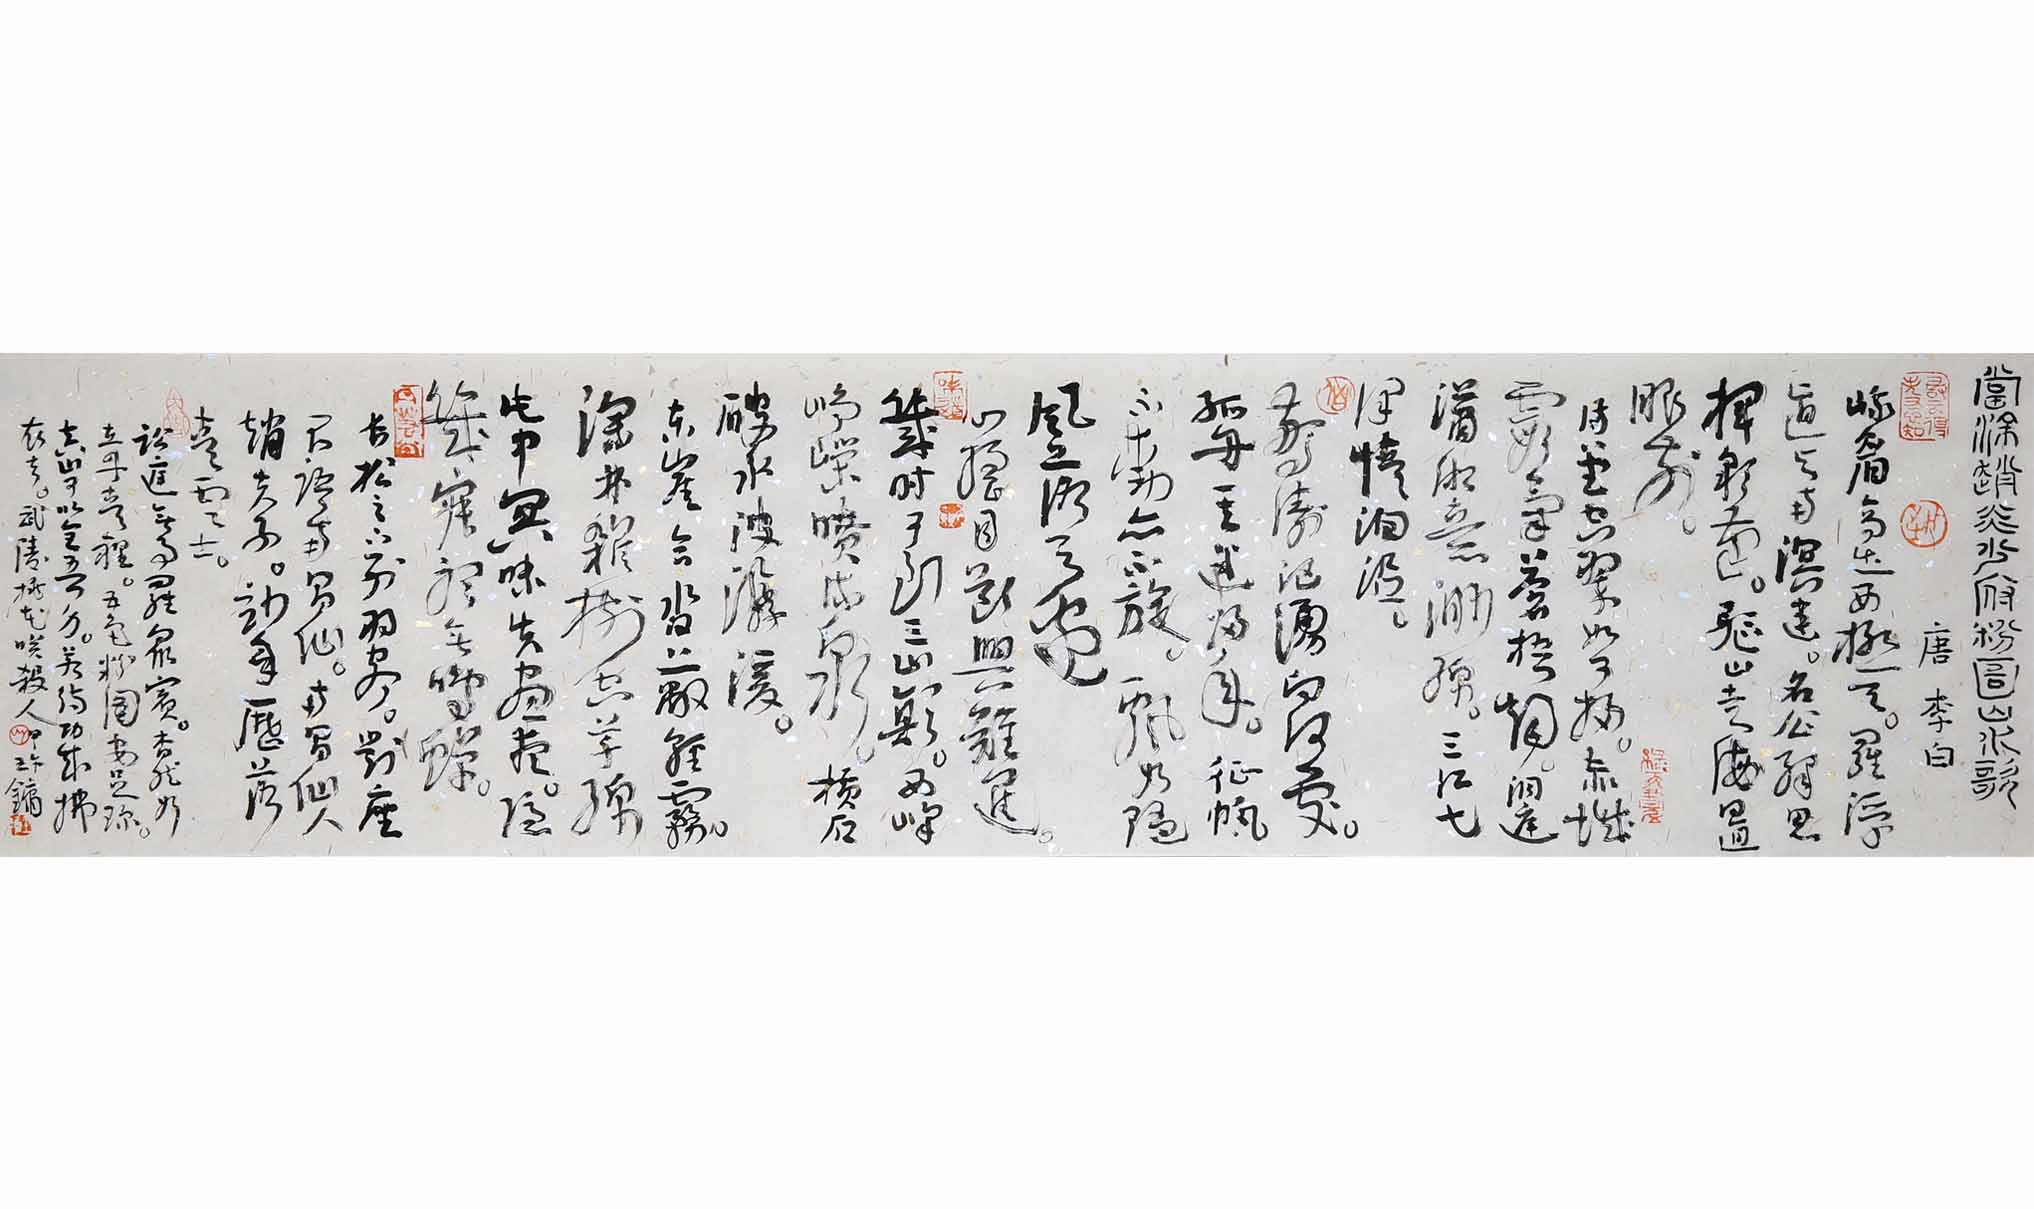 當涂趙炎少府粉圖山水歌
唐 李白
峨眉高出西極天。羅浮
直與南溟連。名公繹思
揮彩筆。驅山走海置
眼前。
滿堂空翠如可掃。赤城
霞氣蒼梧煙。洞庭
瀟湘意渺綿。三江七
澤情洄沿。
驚濤洶湧向何處。
孤舟一去迷歸年。征帆
不動亦不旋。飄如隨
風落天邊
心搖目斷興難盡。
幾時可到三山巔。西峰
崢嶸噴流泉。橫石
蹙水波潺湲。
東崖合沓蔽輕霧。
深林雜樹空芊綿
此中冥昧失晝夜。隱
几寂聽無鳴蟬。
長松之下列羽客。對座
不語南昌仙。南昌仙人
趙夫子。妙年歷落
青雲士。
訟庭無事羅眾賓。杳然如
在丹青裡。五色粉圖安足珍。
真山可以全吾身。若待功成拂
衣去。武陵桃花笑殺人 甲午 鏞